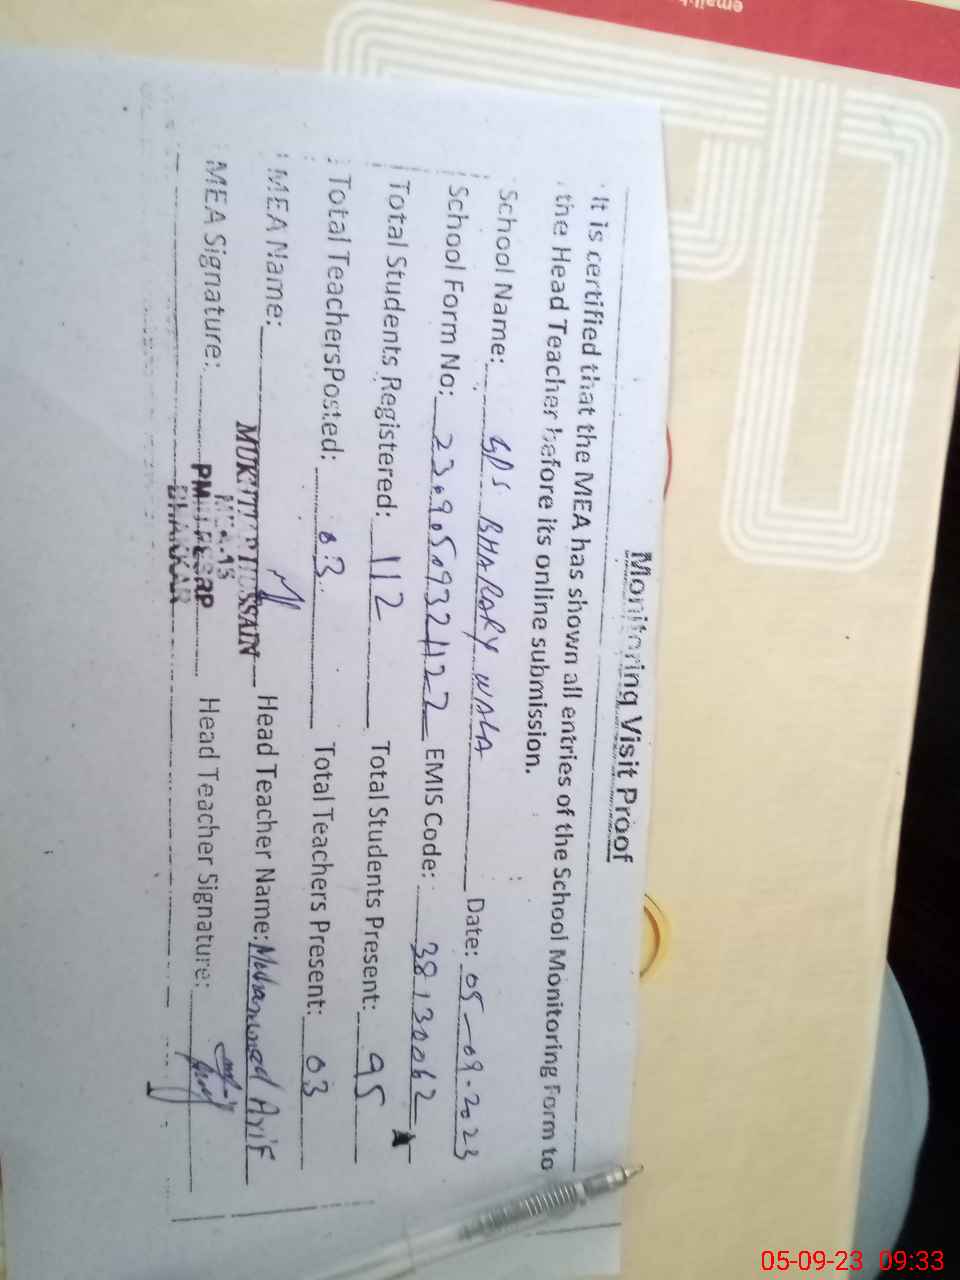 Monitoring Visit Proof
It is certified that the MEA has shown all entries of the School Monitoring Form to
the Head Teacher before its online submission.
School Name: GPS BHARARY WALA Date: 05-09-2023
School Form No: EMIS Code: 38130062
Total Students Registered: 112 Total Students Present: 95
Total TeachersPosted: 03 Total Teachers Present: 03
MEA Name: HUSSAIN Head Teacher Name: Mohammad Arif
MEA Signature: Head Teacher Signature:
BHAKKAR
05-09-23 09:33